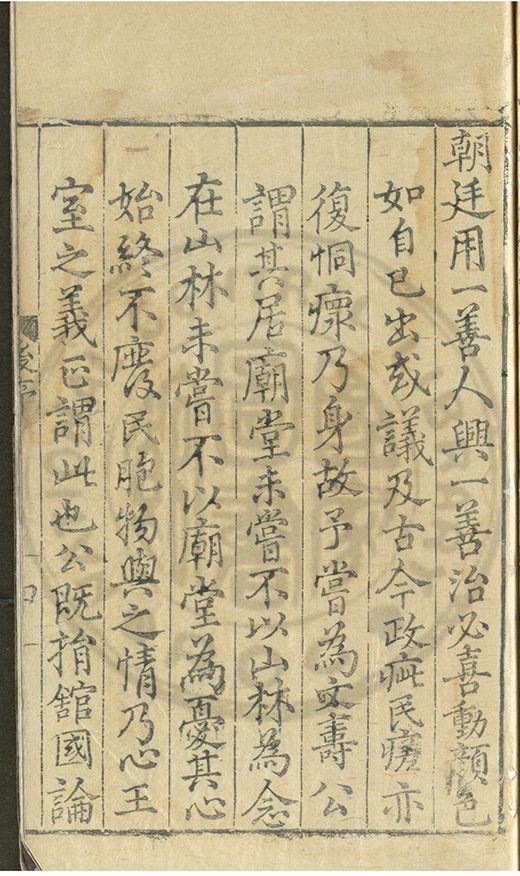 朝廷用一善人興一善治必喜動顏色
如自己出或議及古今政疵民瘼亦
復恫瘝乃身故予嘗為文壽公
謂其居廟堂未嘗不以山林為念
在山林未嘗不以廟堂為憂其心
始終不廢民胞物與之情乃心王
室之義正謂此也公既捐舘國論
後序